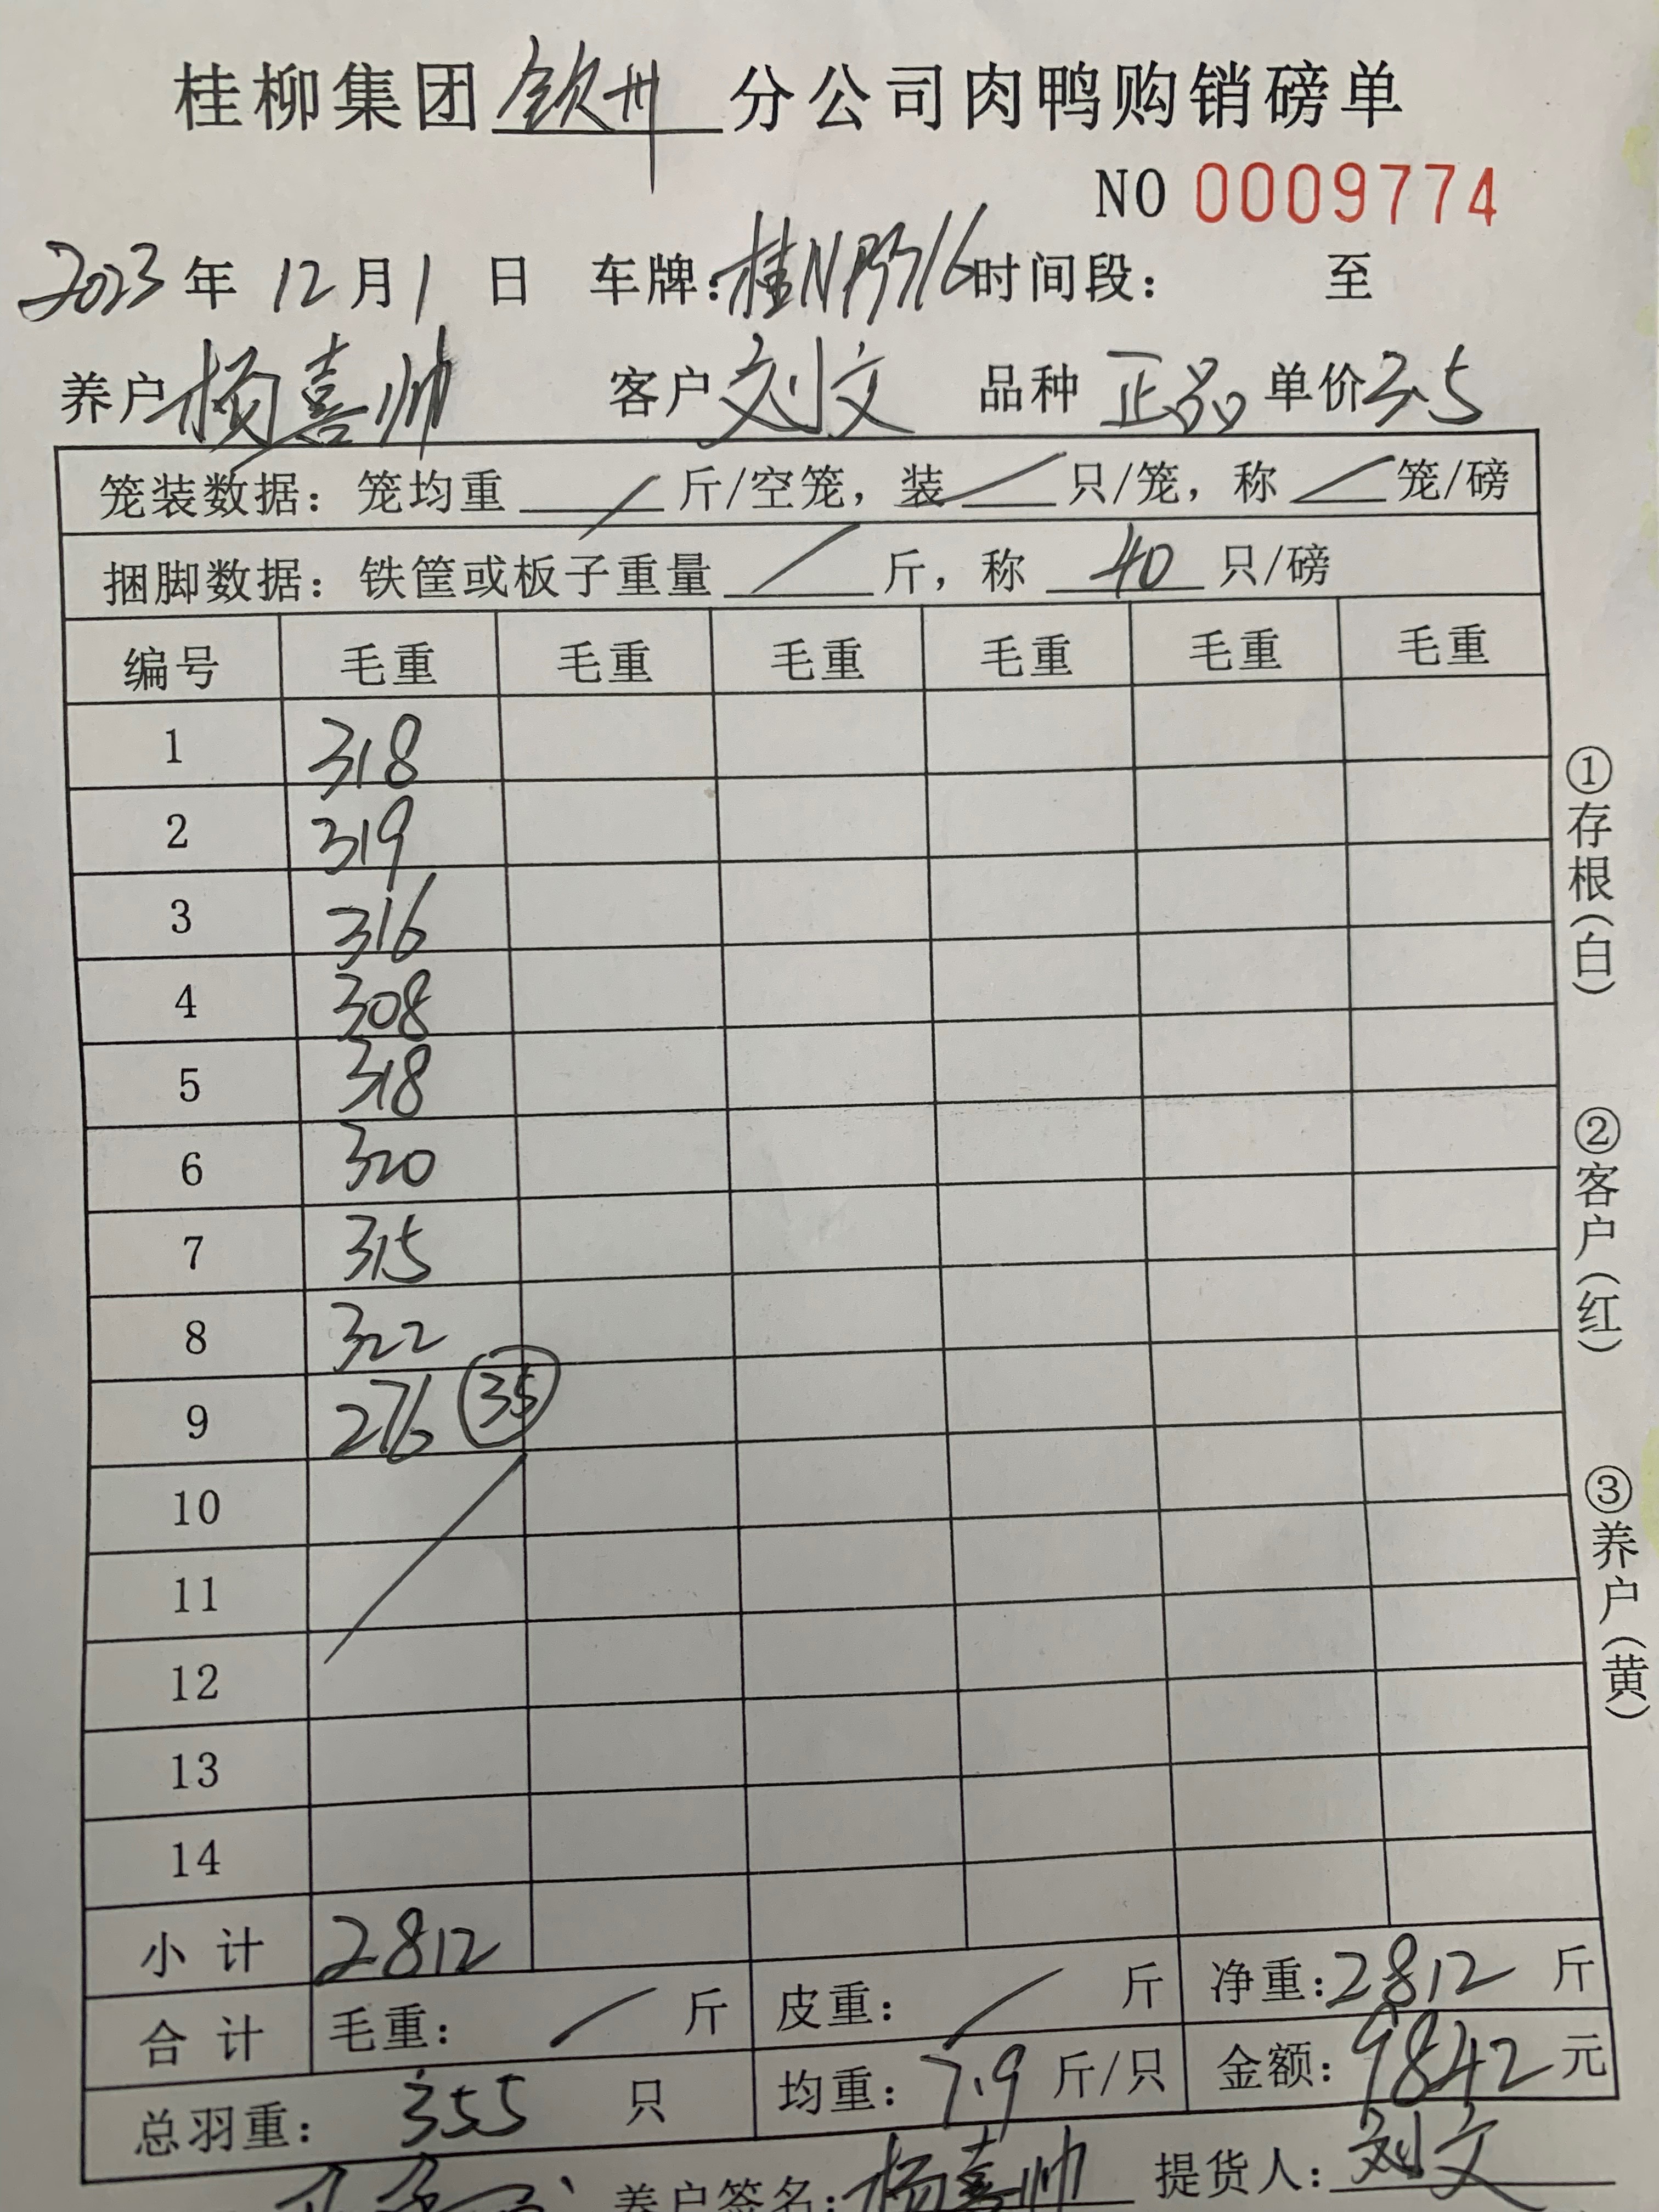 桂柳集团 钦州 分公司肉鸭购销磅单
NO 0009774
2023 年 12 月 1 日 车牌: 时间段: 至
养户 杨喜帅 客户 刘文 品种 正品 单价 3.5
笼装数据: 笼均重 / 斤/空笼, 装 / 只/笼, 称 / 笼/磅
捆脚数据: 铁筐或板子重量 / 斤, 称 40 只/磅
编号 毛重 毛重 毛重 毛重 毛重 毛重
1 318
2 319
3 316
4 308
5 318
6 320
7 315
8 322
9 276 35
10
11
12
13
14
小计 2812
合计 毛重: / 斤 皮重: / 斤 净重: 2812 斤
总羽重: 355 只 均重: 7.9 斤/只 金额: 9842 元
养户签名: 杨喜帅 提货人: 刘文
①存根(白)
②客户(红)
③养户(黄)